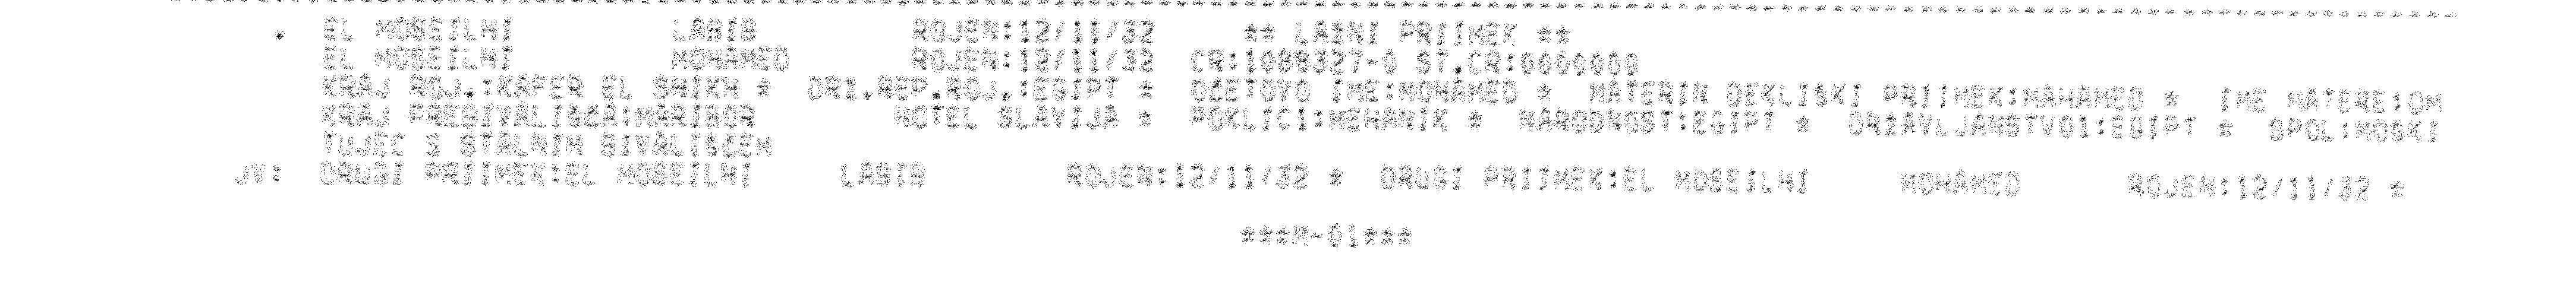 . EL MOSEILHI LABIB ROJEN:12/11/32 ** LAZNI PRIIMEK **
EL MOSEILHI MOHAMED ROJEN:12/11/32 CR:1088327-0 ST.CR:0000000
KRAJ ROJ.:KAFER EL SHIKH * DRZ.REP.ROJ.:EGIPT * OCETOVO IME:MOHAMED * MATERIN DEKLISKI PRIIMEK:MAHAMED * IME MATERE:OM
KRAJ PREBIVALISCA:MARIBOR HOTEL SLAVIJA * POKLIC1:MEHANIK * NARODNOST:EGIPT * DRZAVLJANSTVO1:EGIPT * SPOL:MOSKI
TUJEC S STALNIM BIVALISCEM
JV: DRUGI PRIIMEK:EL MOSEILHI LABIB ROJEN:12/11/32 * DRUGI PRIIMEK:EL MOSEILHI MOHAMED ROJEN:12/11/32 *
***M-01***